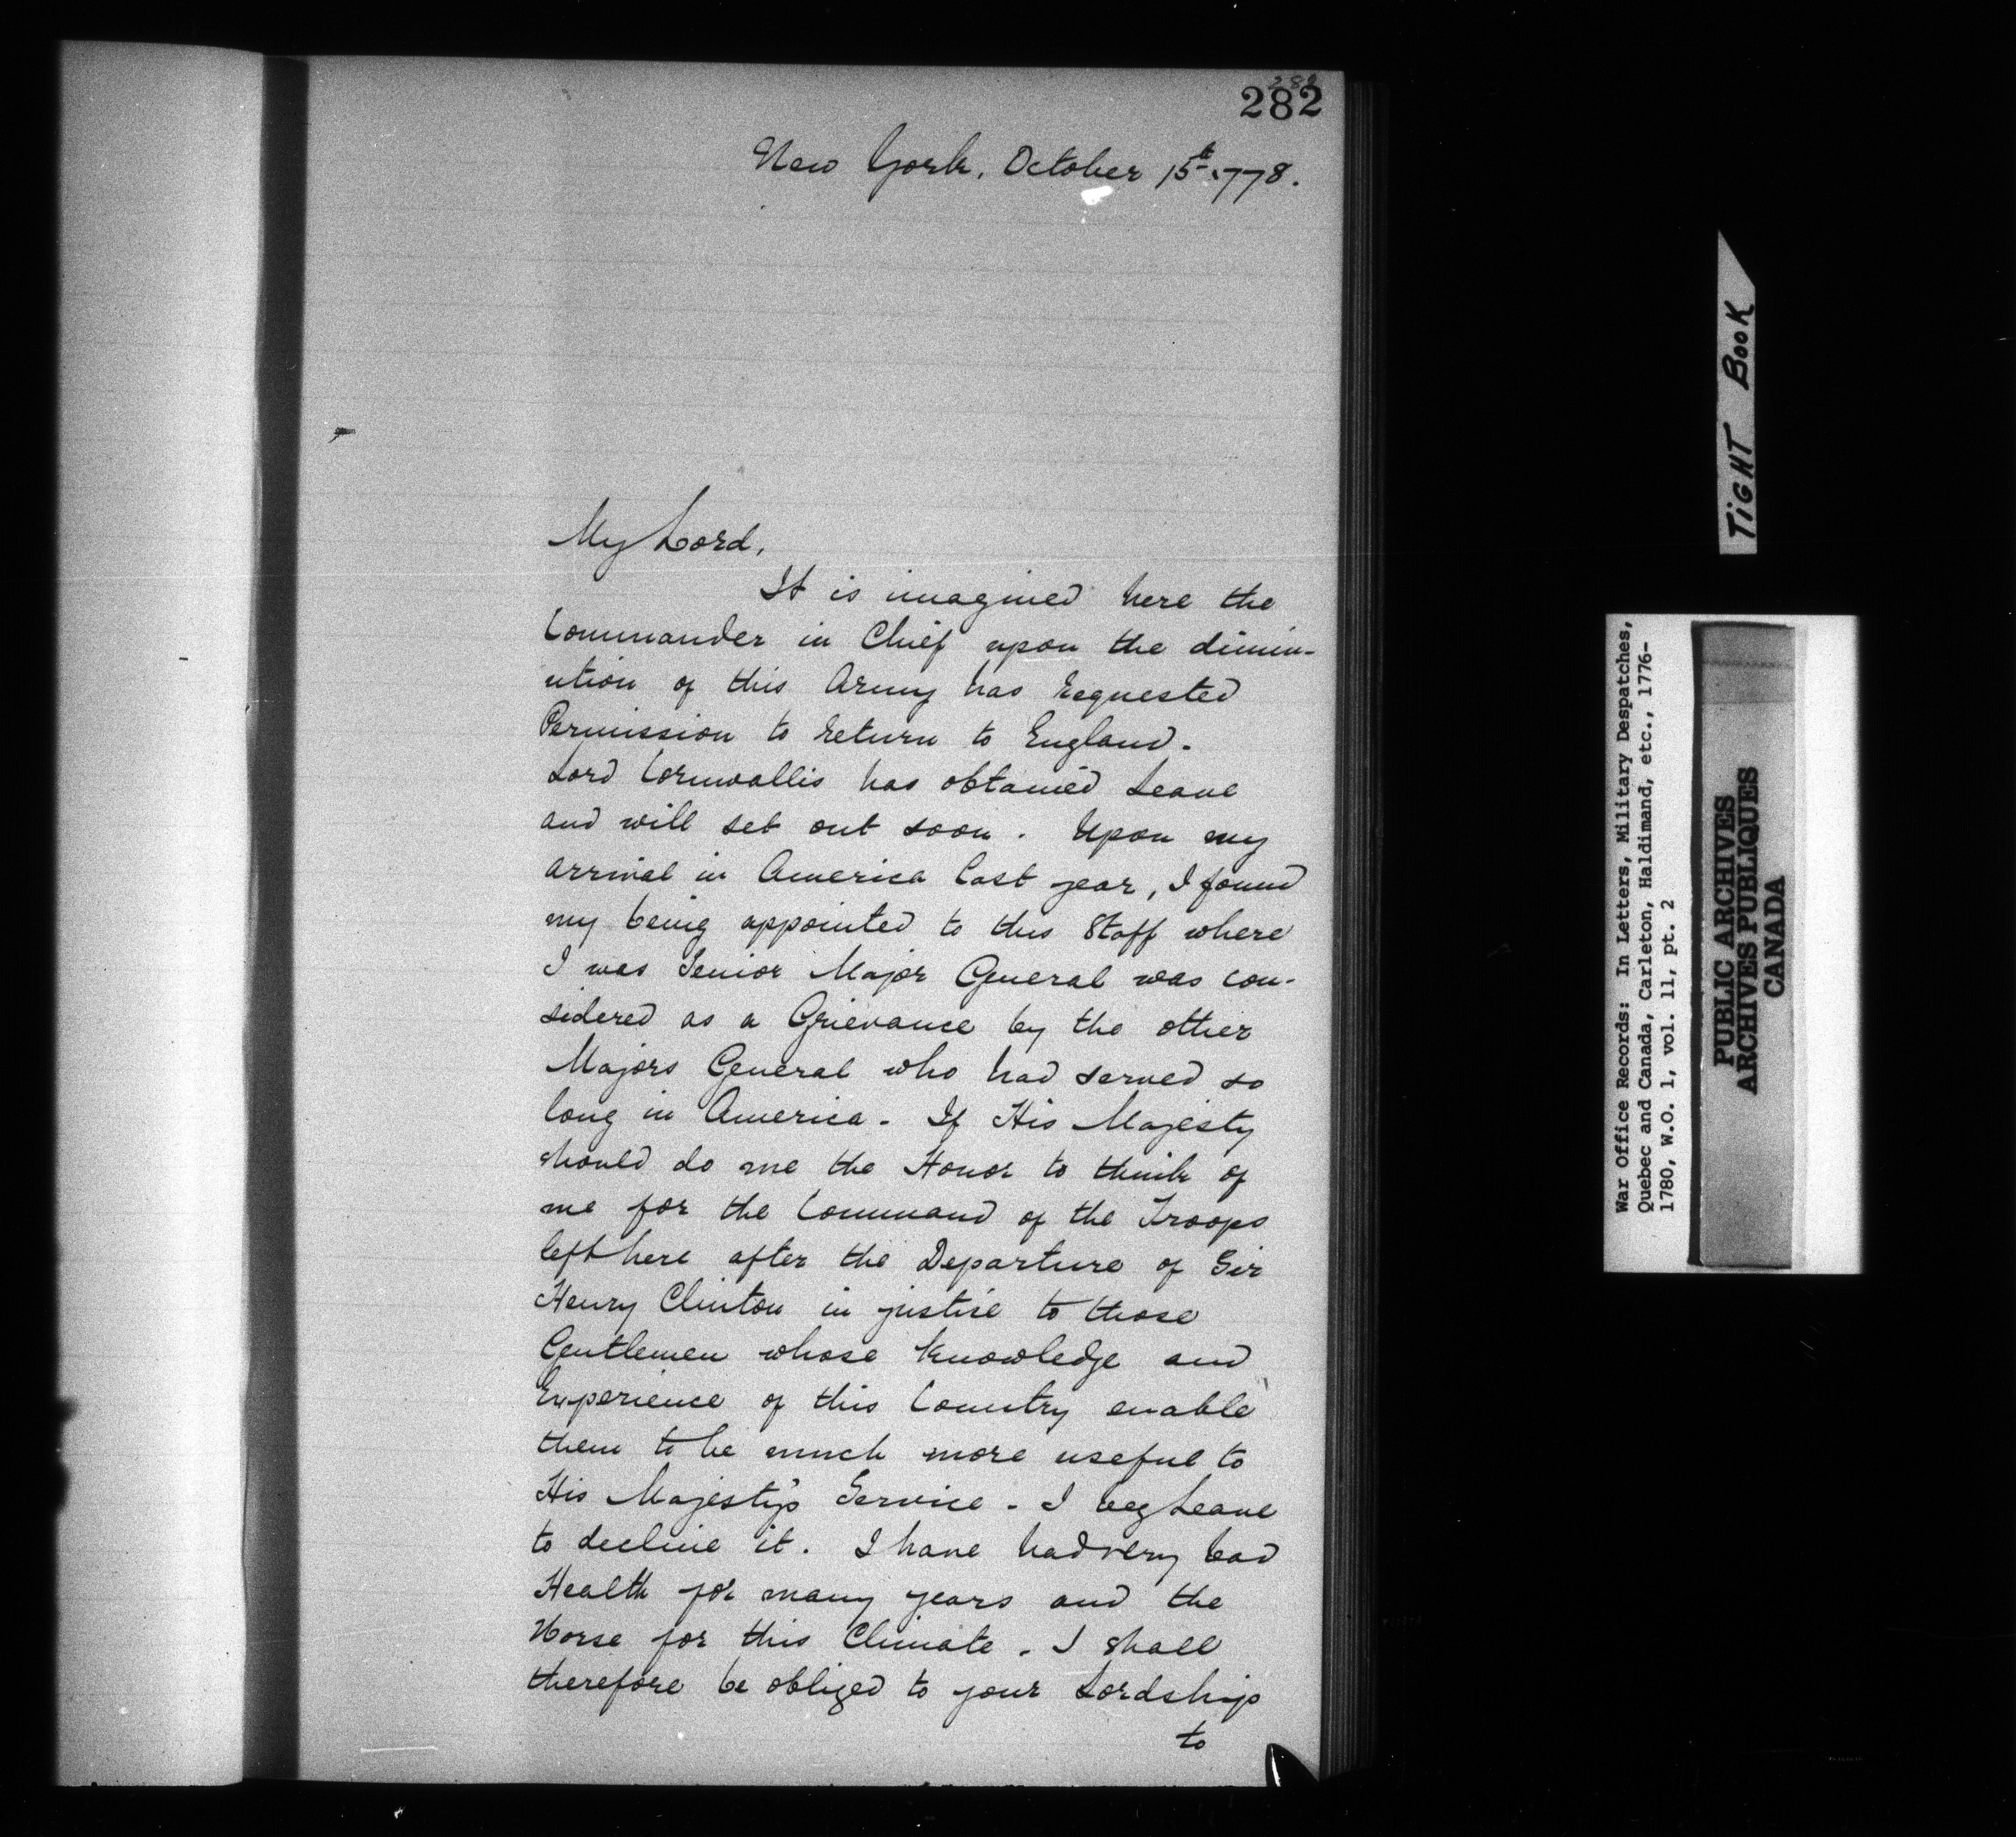 282
282
New York, October 15th 1778.
My Lord,
It is imagined here the
Commander in Chief upon the dimin-
ution of this Army has requested
Permission to return to England.
Lord Cornwallis has obtained Leave
and will set out soon. Upon my
arrival in America last year, I found
my being appointed to this Staff where
I was Senior Major General was con-
sidered as a Grievance by the other
Majors General who had served so
long in America - If His Majesty
should do me the Honor to think of
me for the Command of the Troops
left here after the Departure of Sir
Henry Clinton in justice to those
Gentlemen whose Knowledge and
Experience of this Country enable
them to be much more useful to
His Majesty's Service - I beg Leave
to decline it. I have had very bad
Health for many years and the
Worse for this Climate. I shall
therefore be obliged to your Lordship
to
TIGHT BOOK
War Office Records: In Letters, Military Despatches,
Quebec and Canada, Carleton, Haldimand, etc., 1776-
1780, W.O. 1, vol. 11, pt. 2
PUBLIC ARCHIVES
ARCHIVES PUBLIQUES
CANADA